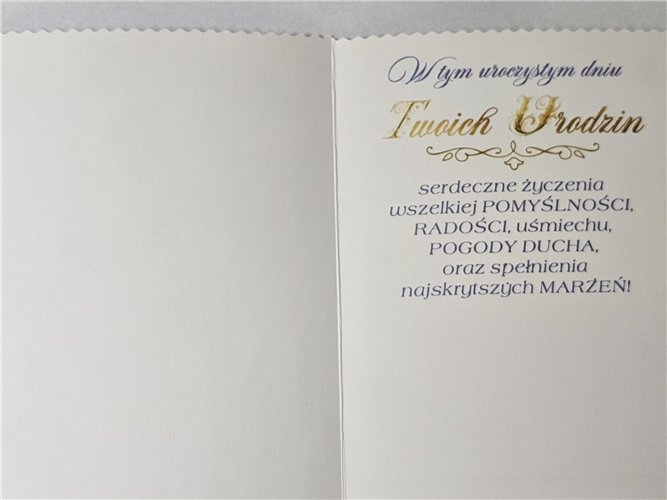 W tym uroczystym dniu
Twoich Urodzin
serdeczne życzenia
wszelkiej POMYŚLNOŚCI,
RADOŚCI, uśmiechu,
POGODY DUCHA,
oraz spełnienia
najskrytszych MARZEŃ!